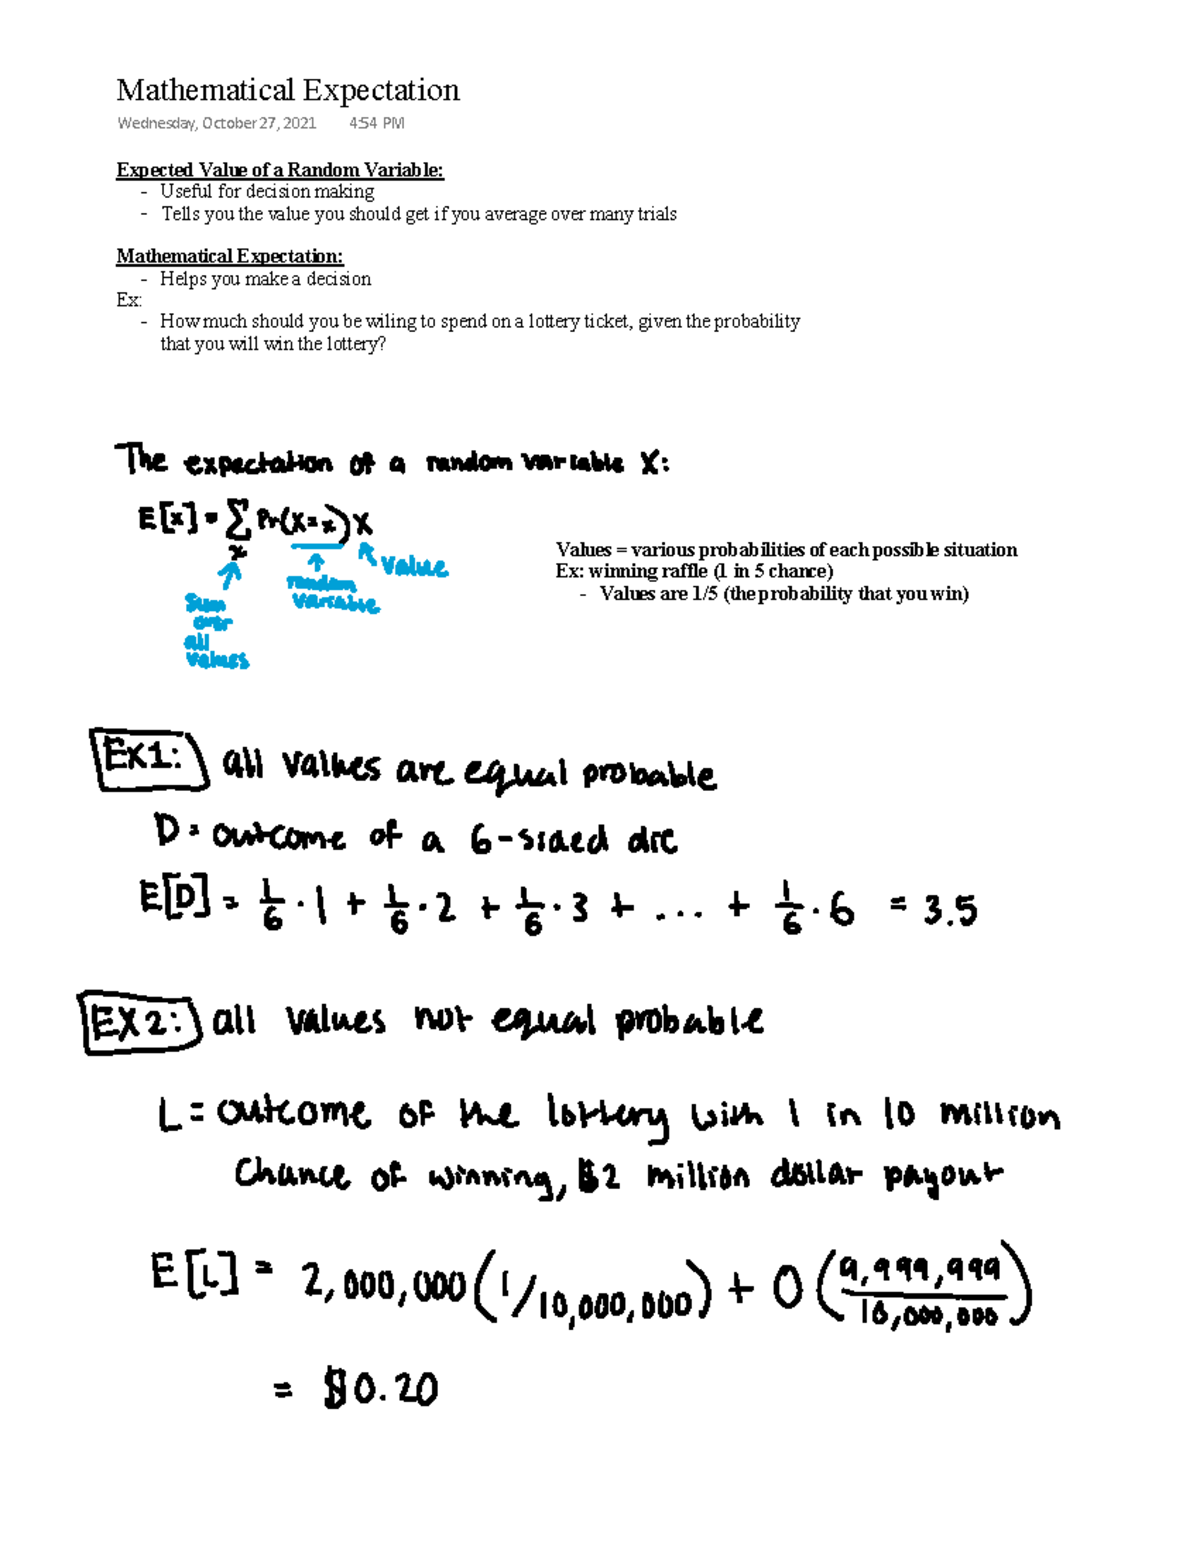 Mathematical Expectation
Wednesday, October 27, 2021 4:54 PM
Expected Value of a Random Variable:
- Useful for decision making
- Tells you the value you should get if you average over many trials
Mathematical Expectation:
- Helps you make a decision
Ex:
- How much should you be wiling to spend on a lottery ticket, given the probability
that you will win the lottery?
The expectation of a random variable X:
E[x] = ∑ Pr(X=x) X
x
value
random
variable
Sum
over
all
values
Values = various probabilities of each possible situation
Ex: winning raffle (1 in 5 chance)
- Values are 1/5 (the probability that you win)
Ex1: all values are equal probable
D = outcome of a 6-sided die
E[D] = 1/6 · 1 + 1/6 · 2 + 1/6 · 3 + ... + 1/6 · 6 = 3.5
EX2: all values not equal probable
L = outcome of the lottery with 1 in 10 million
chance of winning, $2 million dollar payout
E[L] = 2,000,000 (1/10,000,000) + 0 (9,999,999/10,000,000)
= $0.20